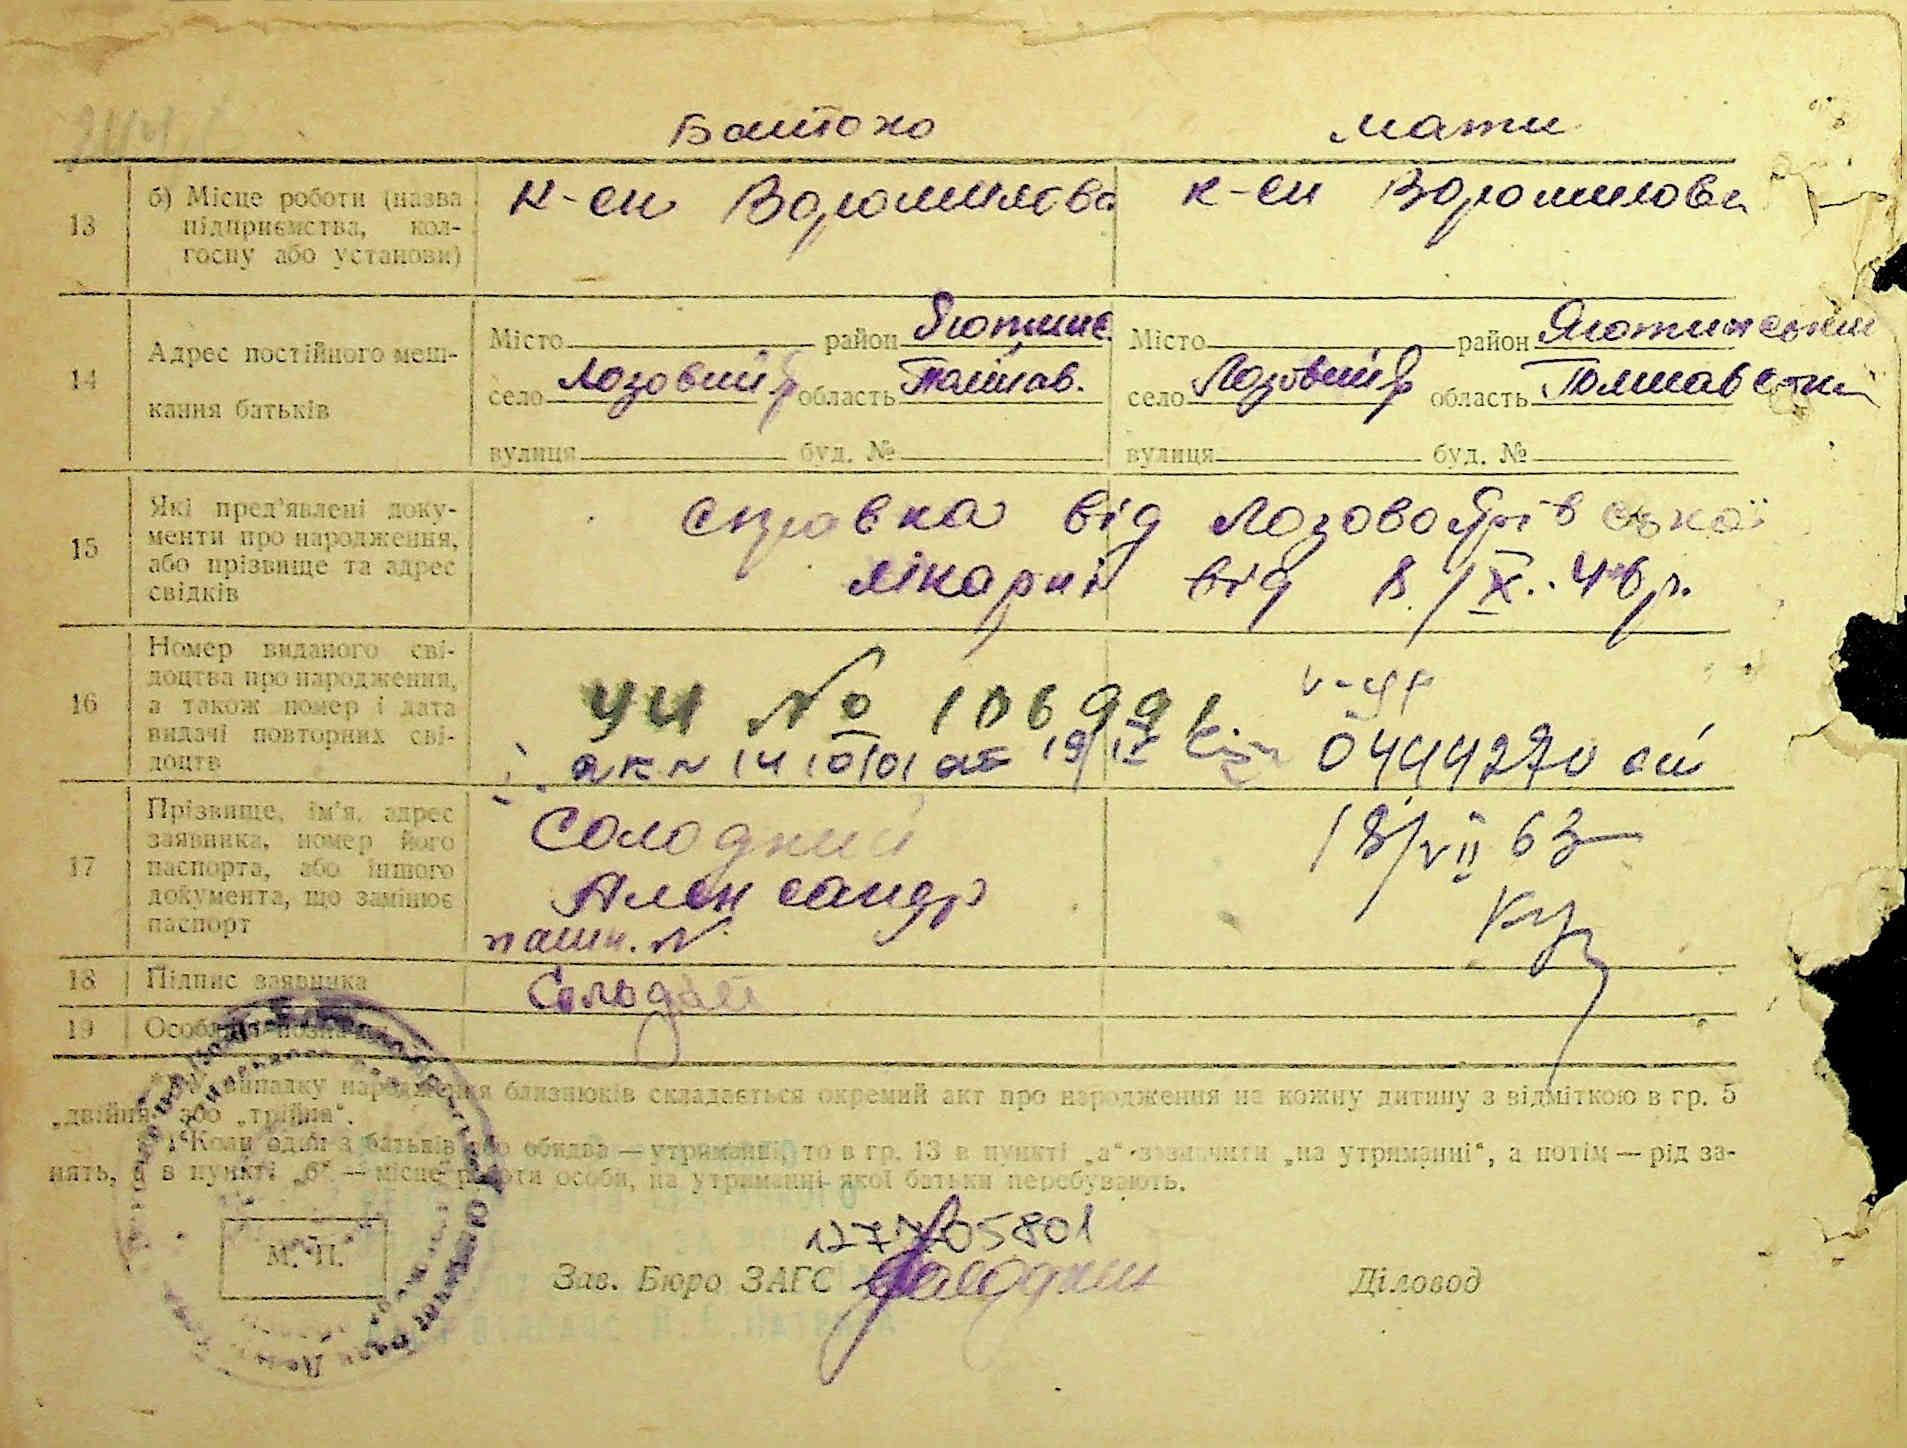 Батько Мати
13 б) Місце роботи (назва підприємства, колгоспу або установи) к-сп Ворошилова к-сп Ворошилова
14 Адрес постійного мешкання батьків
Місто район Яготинс. Місто район Яготинський
село Лозовий Яр область Полтав. село Лозовий Яр область Полтавська
вулиця буд. № вулиця буд. №
15 Які пред'явлені документи про народження, або прізвище та адрес свідків
справка від Лозовоярівської
лікарні від 8/ІХ. 46р.
16 Номер виданого свідоцтва про народження, а також номер і дата видачі повторних свідоцтв
УИ № 106991
0444270 от
17 Прізвище, ім'я, адрес заявника, номер його паспорта, або іншого документа, що замінює паспорт
Солодкий 18/VII 63
Александр
пашп. №
18 Підпис заявника Солодкий
19 Особливі
*) У випадку народження близнюків складається окремий акт про народження на кожну дитину з відміткою в гр. 5
„двійня" або „трійня".
Коли один з батьків або обидва — утриманці, то в гр. 13 в пункті „а" зазначити „на утриманні", а потім — рід за-
нять, а в пункті „б" — місце роботи особи, на утриманні якої батьки перебувають.
М. П.
Зав. Бюро ЗАГС Діловод